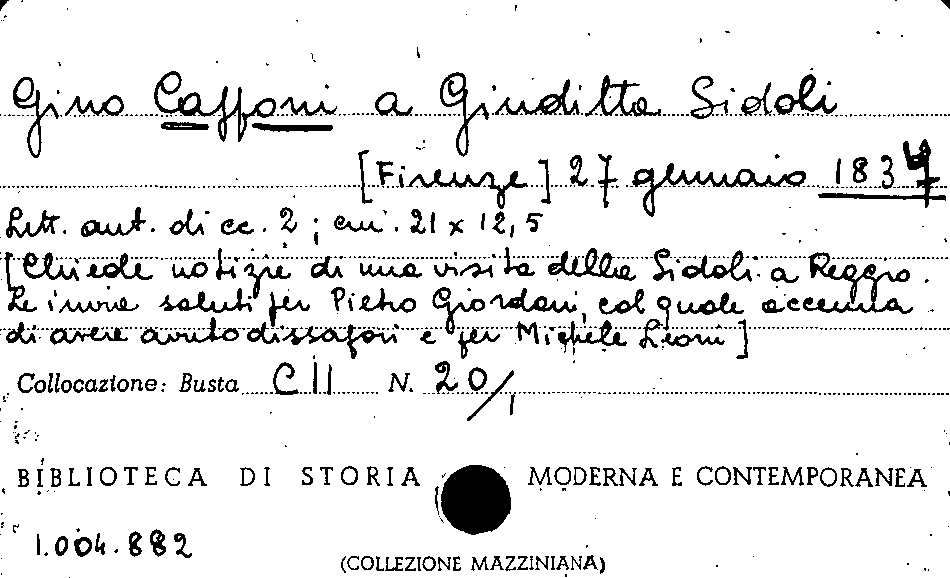 Gino Capponi a Giuditta Sidoli
[Firenze] 27 gennaio 1837
Lett. aut. di cc. 2; cm. 21 x 12,5
[Chiede notizie di una visita della Sidoli a Reggio.
Le invia saluti per Pietro Giordani, col quale accenna
di avere avuto dissapori e per Michele Leoni]
Collocazione: Busta C II N. 20/1
BIBLIOTECA DI STORIA MODERNA E CONTEMPORANEA
1.004.882
(COLLEZIONE MAZZINIANA)